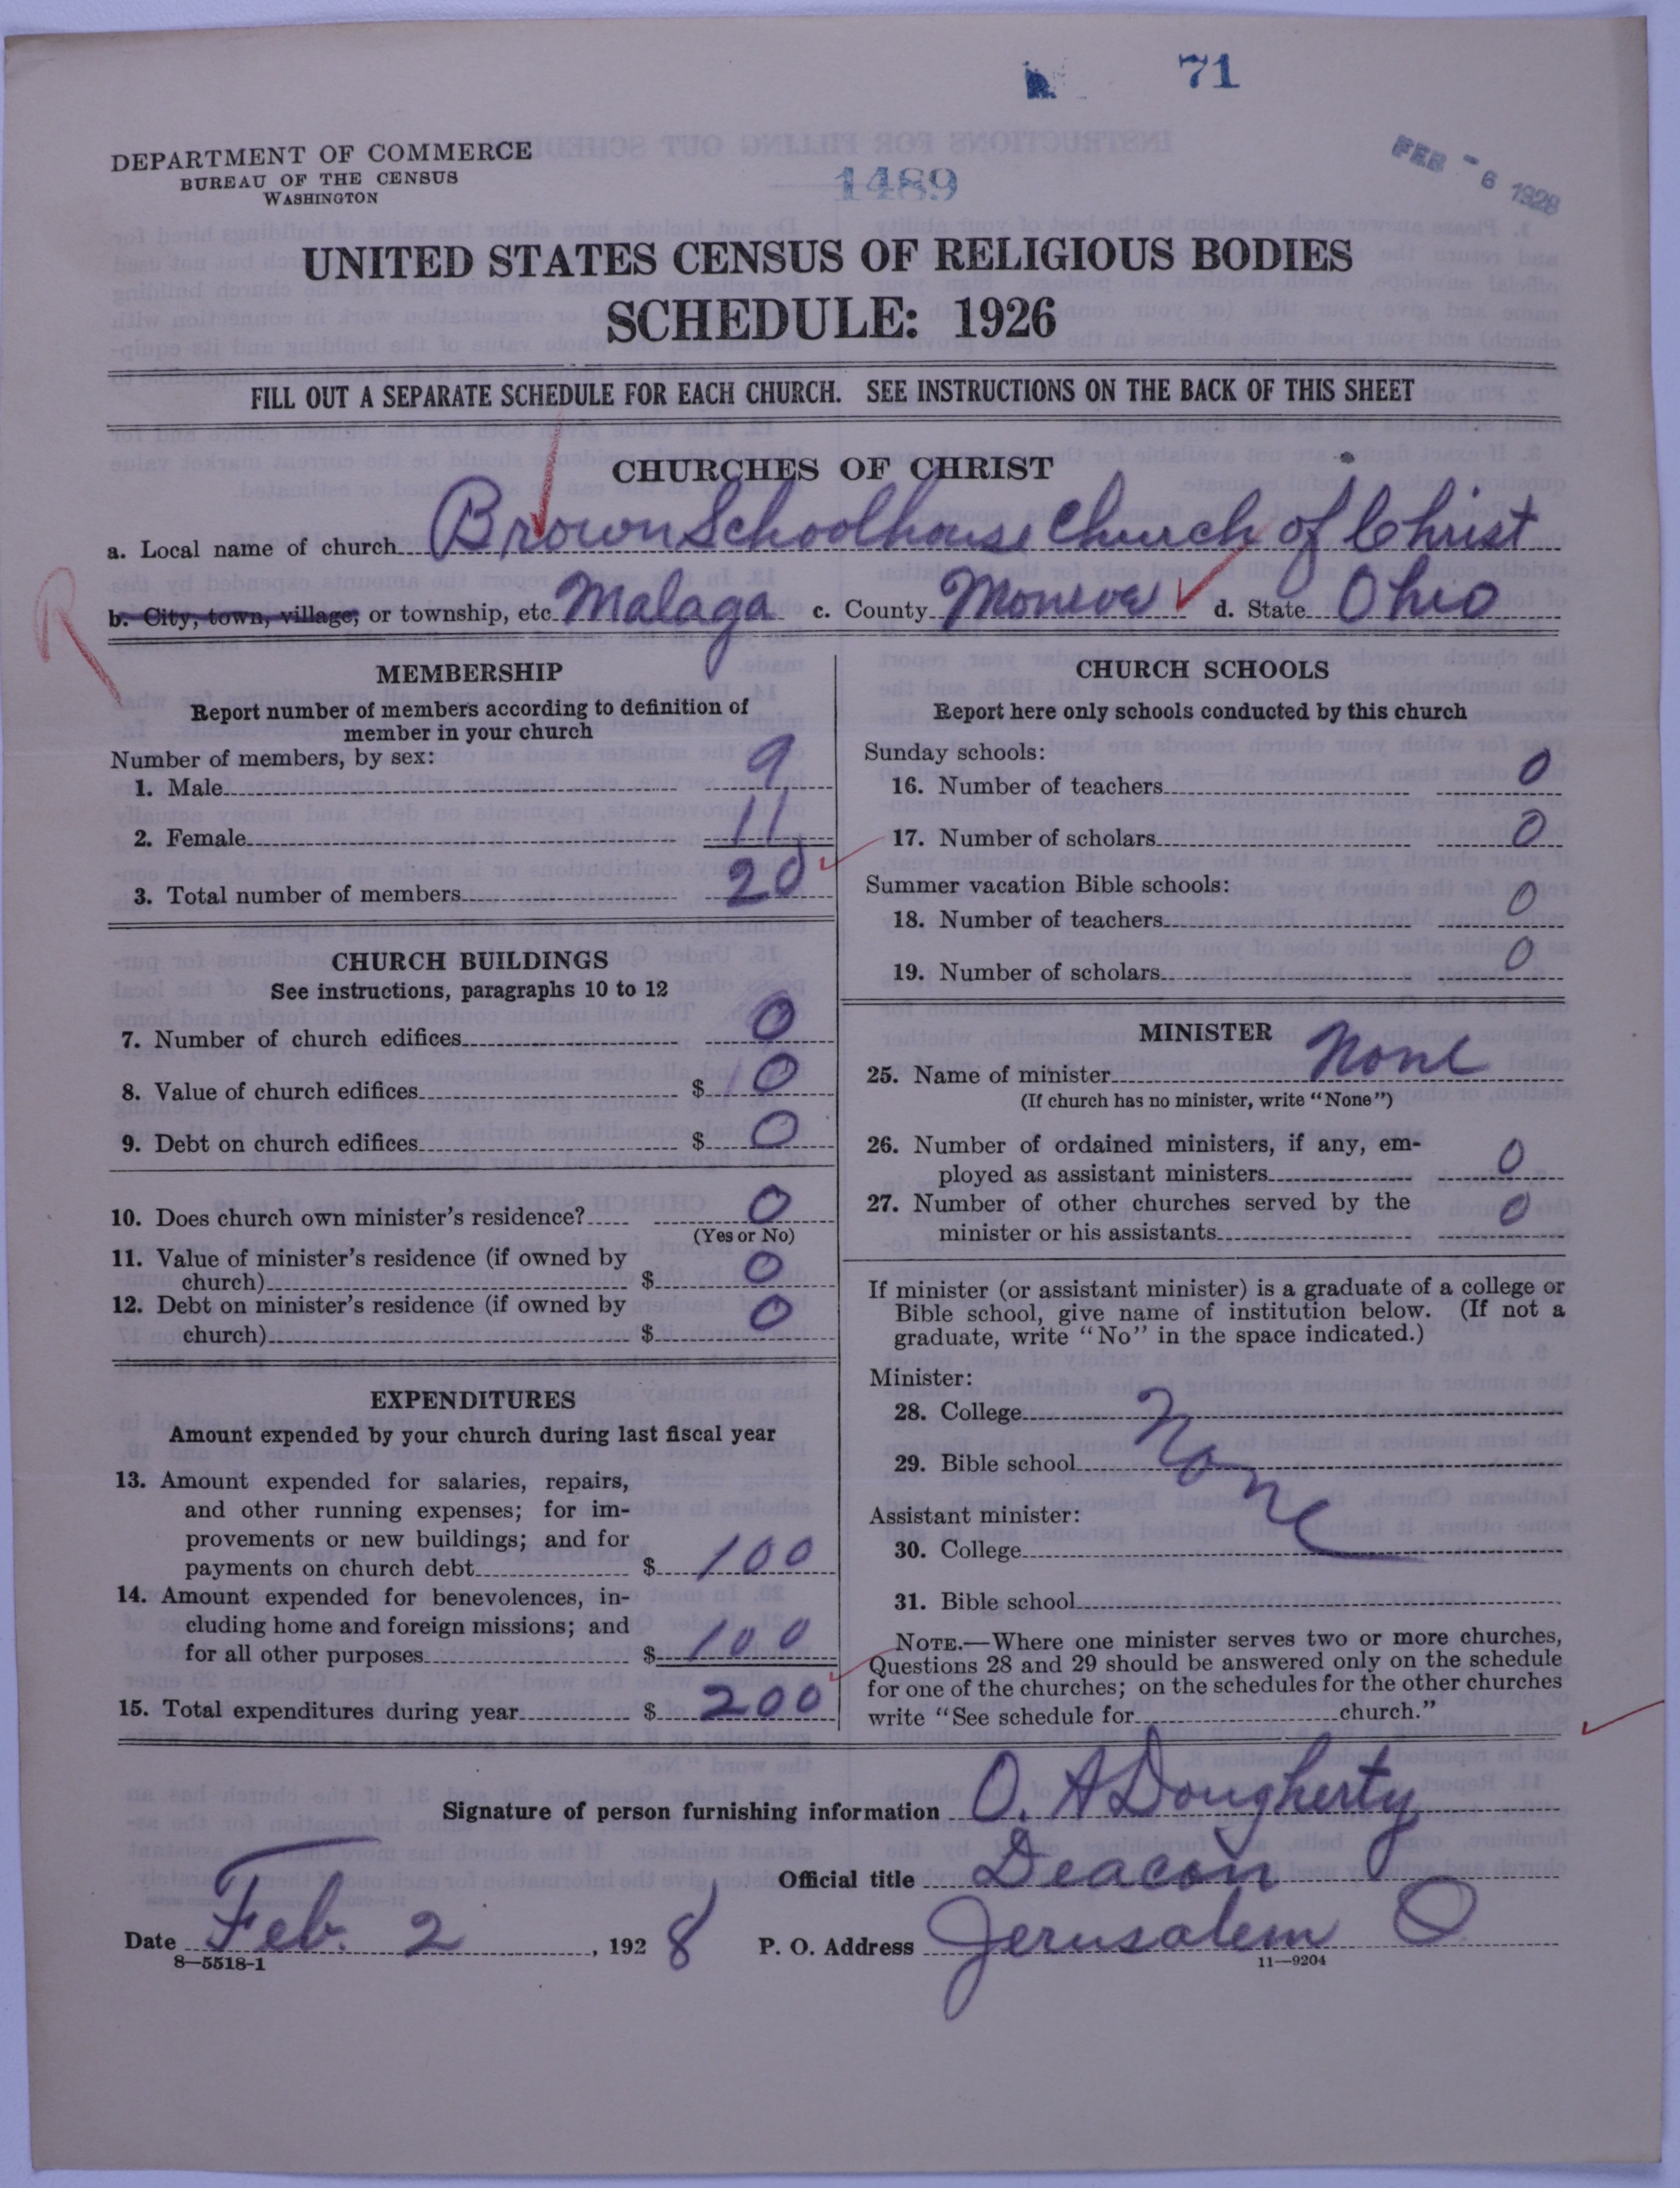 71
DEPARTMENT OF COMMERCE
BUREAU OF THE CENSUS
WASHINGTON
1489
FEB - 6 1928
UNITED STATES CENSUS OF RELIGIOUS BODIES
SCHEDULE: 1926
FILL OUT A SEPARATE SCHEDULE FOR EACH CHURCH. SEE INSTRUCTIONS ON THE BACK OF THIS SHEET
CHURCHES OF CHRIST
a. Local name of church Brown Schoolhouse Church of Christ
R
b. City, town, village, or township, etc. Malaga c. County Monroe d. State Ohio
MEMBERSHIP
Report number of members according to definition of
member in your church
Number of members, by sex:
1. Male 9
2. Female 11
3. Total number of members 20
CHURCH BUILDINGS
See instructions, paragraphs 10 to 12
7. Number of church edifices 0
8. Value of church edifices $ 0
9. Debt on church edifices $ 0
10. Does church own minister's residence? 0
(Yes or No)
11. Value of minister's residence (if owned by
church) $ 0
12. Debt on minister's residence (if owned by
church) $ 0
EXPENDITURES
Amount expended by your church during last fiscal year
13. Amount expended for salaries, repairs,
and other running expenses; for im-
provements or new buildings; and for
payments on church debt $ 100
14. Amount expended for benevolences, in-
cluding home and foreign missions; and
for all other purposes $ 100
15. Total expenditures during year $ 200
CHURCH SCHOOLS
Report here only schools conducted by this church
Sunday schools:
16. Number of teachers 0
17. Number of scholars 0
Summer vacation Bible schools:
18. Number of teachers 0
19. Number of scholars 0
MINISTER
25. Name of minister None
(If church has no minister, write "None")
26. Number of ordained ministers, if any, em-
ployed as assistant ministers 0
27. Number of other churches served by the
minister or his assistants 0
If minister (or assistant minister) is a graduate of a college or
Bible school, give name of institution below. (If not a
graduate, write "No" in the space indicated.)
Minister:
28. College
29. Bible school None
Assistant minister:
30. College
31. Bible school
NOTE.—Where one minister serves two or more churches,
Questions 28 and 29 should be answered only on the schedule
for one of the churches; on the schedules for the other churches
write "See schedule for church."
Signature of person furnishing information O. A Dougherty
Official title Deacon
Date Feb. 2, 1928 P. O. Address Jerusalem O
8—5518-1
11—9204